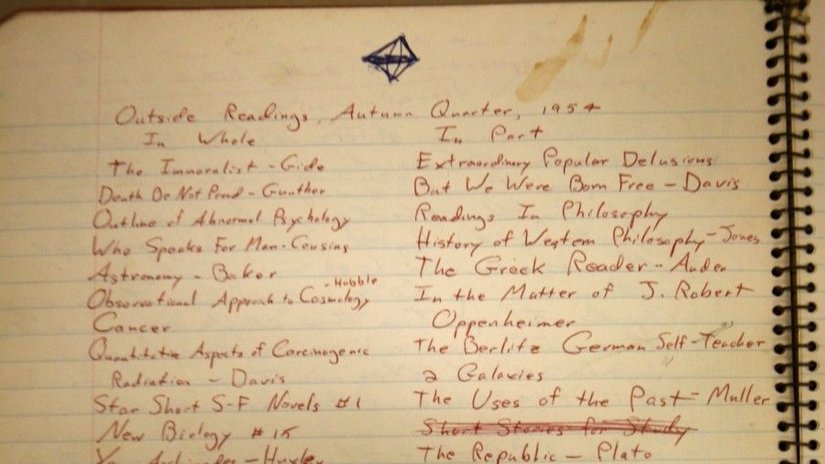 Outside Readings, Autumn Quarter, 1954
In Whole
The Immoralist - Gide
Death Be Not Proud - Gunther
Outline of Abnormal Psychology
Who Speaks For Man - Cousins
Astronomy - Baker
Observational Approach to Cosmology - Hubble
Cancer
Quantitative Aspects of Carcinogenic
Radiation - Davis
Star Short S-F Novels #1
New Biology #15
- Huxley
In Part
Extraordinary Popular Delusions
But We Were Born Free - Davis
Readings In Philosophy
History of Western Philosophy - Jones
The Greek Reader - Auden
In the Matter of J. Robert
Oppenheimer
The Berlitz German Self-Teacher
2 Galaxies
The Uses of the Past - Muller
Short Stories for Study
The Republic - Plato